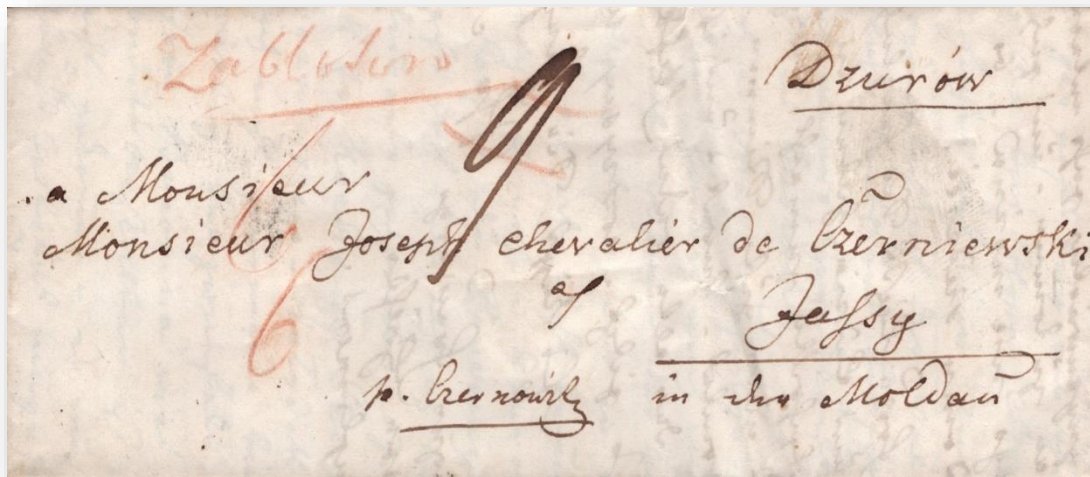 Zabłotow
Dzurów
9
6
6
a Monsieur
Monsieur Joseph Chevalier de Czerniewski
a
Jassy
p. Czernowitz in der Moldau